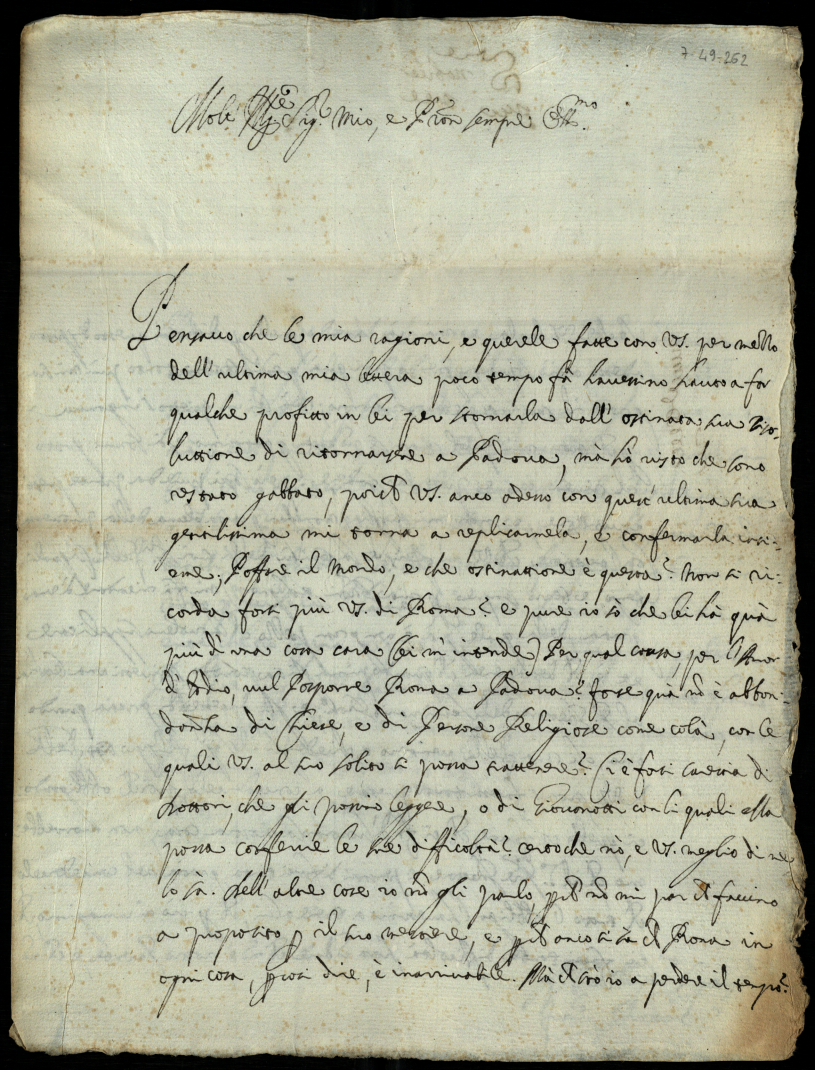 7-49-262
Molt' Ill.re Sig.r mio, e P'ron sempre Oss.mo
Pensauo che le mia ragioni, e querele fatte con VS. per mezzo
dell' vltima mia lettera poco tempo fà hauessino hauto a far
qualche profitto in lei per stornarla dall' ostinata sua riso-
luttione di ritornarsene a Padoua, mà hò visto che sono
restato gabbato, poiche VS. anco adesso con quest' vltima sua
gentilissima mi torna a replicarmela, e confermarla insi-
eme; Poffare il Mondo, e che ostinattione è questa? Non si ri-
corda forsi più VS. di Roma? e pure io sò che lei hà quà
più d' vna cosa cara (lei m' intende) Per qual causa, per Amor
d' Iddio, vuol Posporre Roma a Padoua? forse quà nõ è abbon-
danza di Chiese, e di Persone Religiose come colà, con le
quali VS. al suo solito si possa trattenere? Ci è forsi carestia di
Dottori, che gli possino leggere, o di Giouanotti con li quali ella
possa conferire le sue difficoltà? certo che nò, e VS. meglio di me
lo sà. Dell' altre cose io nõ gli parlo, perche nõ mi par che faccino
a proposito per il suo mestiere, e perche anco si sà che Roma in
ogni cosa, per così dire, è inarriuabile. Mà che stò io a perdere il tempo?